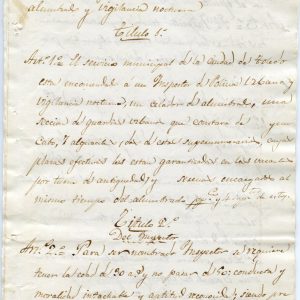 alumbrado y vigilancia nocturna
Título 1º
Artº 1º El servicio municipal de la ciudad de Toledo
esta encomendado á un Inspector de Policia Urbana y
vigilancia nocturna, un celador de alumbrado, una
seccion de guardas urbanos que constara de
Cabo, y (dos de estos supernumerarios), cuyas
plazas efectivas les estan garantizadas en las vacantes
por turno de antiguedad, y encargado al
mismo tiempo del alumbrado
Título 2º
Del Inspector
Art. 2º Para ser nombrado Inspector se requiere
tener la edad de 30 a.s y no pasar de 50: conducta y
moralidad intachable y aptitud reconocida, siendo pre